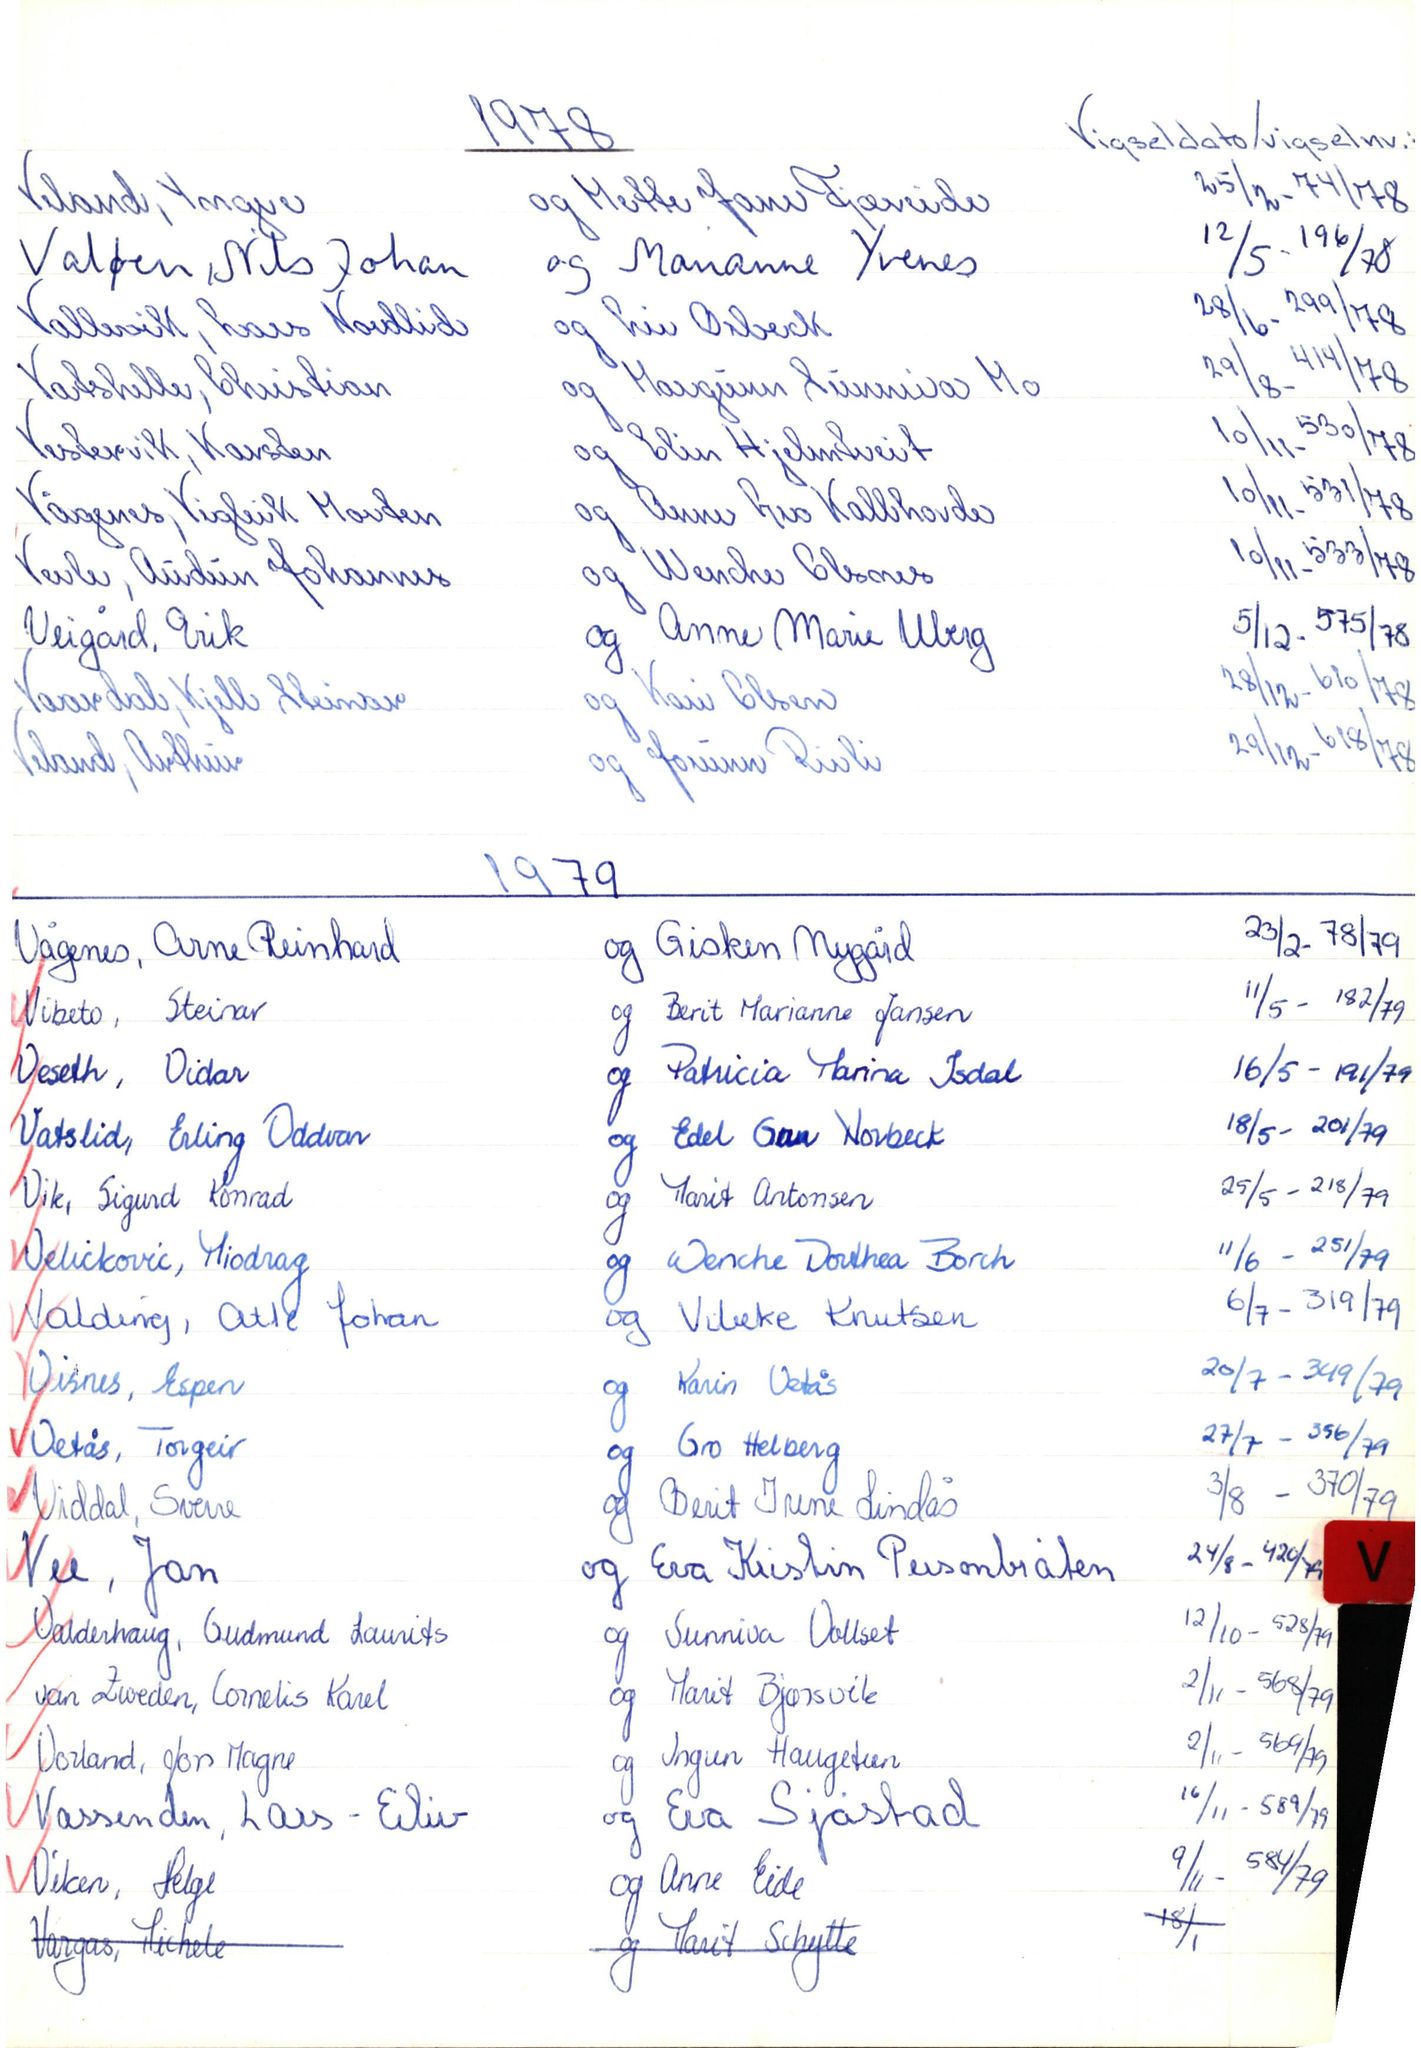 1978
Vigseldato/vigselnr.:
Veland, Yngve og Mette Jane Fjæreide 25/2-74/78
Valøen, Nils Johan og Marianne Yvenes 12/5-196/78
Vallevik, Lars Nordlid og Liv Osbeck 28/6-299/78
Vatshelle, Christian og Maugunn Sunniva Mo 29/8-414/78
Vestervik, Karsten og Elin Hjelmtveit 10/11-530/78
Vågenes, Vigleik Morten og Anne Lea Kallhovde 10/11-531/78
Vevle, Audun Johannes og Wenche Olsnes 10/11-533/78
Veigård, Erik og Anne Marie Uberg 5/12-575/78
Vaardal, Kjell Steinar og Kari Olsen 28/12-610/78
Veland, Arthur og Jorunn Risli 29/12-618/78
1979
Vågenes, Arne Reinhard og Gisken Nygård 23/2-78/79
Vibeto, Steinar og Berit Marianne Jansen 11/5-182/79
Veseth, Vidar og Patricia Marina Isdal 16/5-191/79
Vatslid, Erling Oddvar og Edel Gau Norbeck 18/5-201/79
Vik, Sigurd Konrad og Marit Antonsen 25/5-218/79
Velickovic, Miodrag og Wenche Dorthea Borch 11/6-251/79
Valding, Atle Johan og Vibeke Knutsen 6/7-319/79
Visnes, Espen og Karin Vetås 20/7-349/79
Vetås, Torgeir og Gro Helberg 27/7-356/79
Viddal, Sverre og Berit Irene Lindås 3/8-370/79
Vee, Jan og Eva Kristin Personbråten 24/8-420/79
V
Valderhaug, Gudmund Laurits og Sunniva Vollset 12/10-528/79
van Zweden, Cornelis Karel og Marit Bjørsvik 2/11-568/79
Vorland, Jon Magne og Ingun Haugetun 2/11-569/79
Vassenden, Lars-Eiliv og Eva Sjåstad 16/11-589/79
Viken, Helge og Anne Eide 9/11-584/79
Vargas, Michele og Marit Schytte 18/1